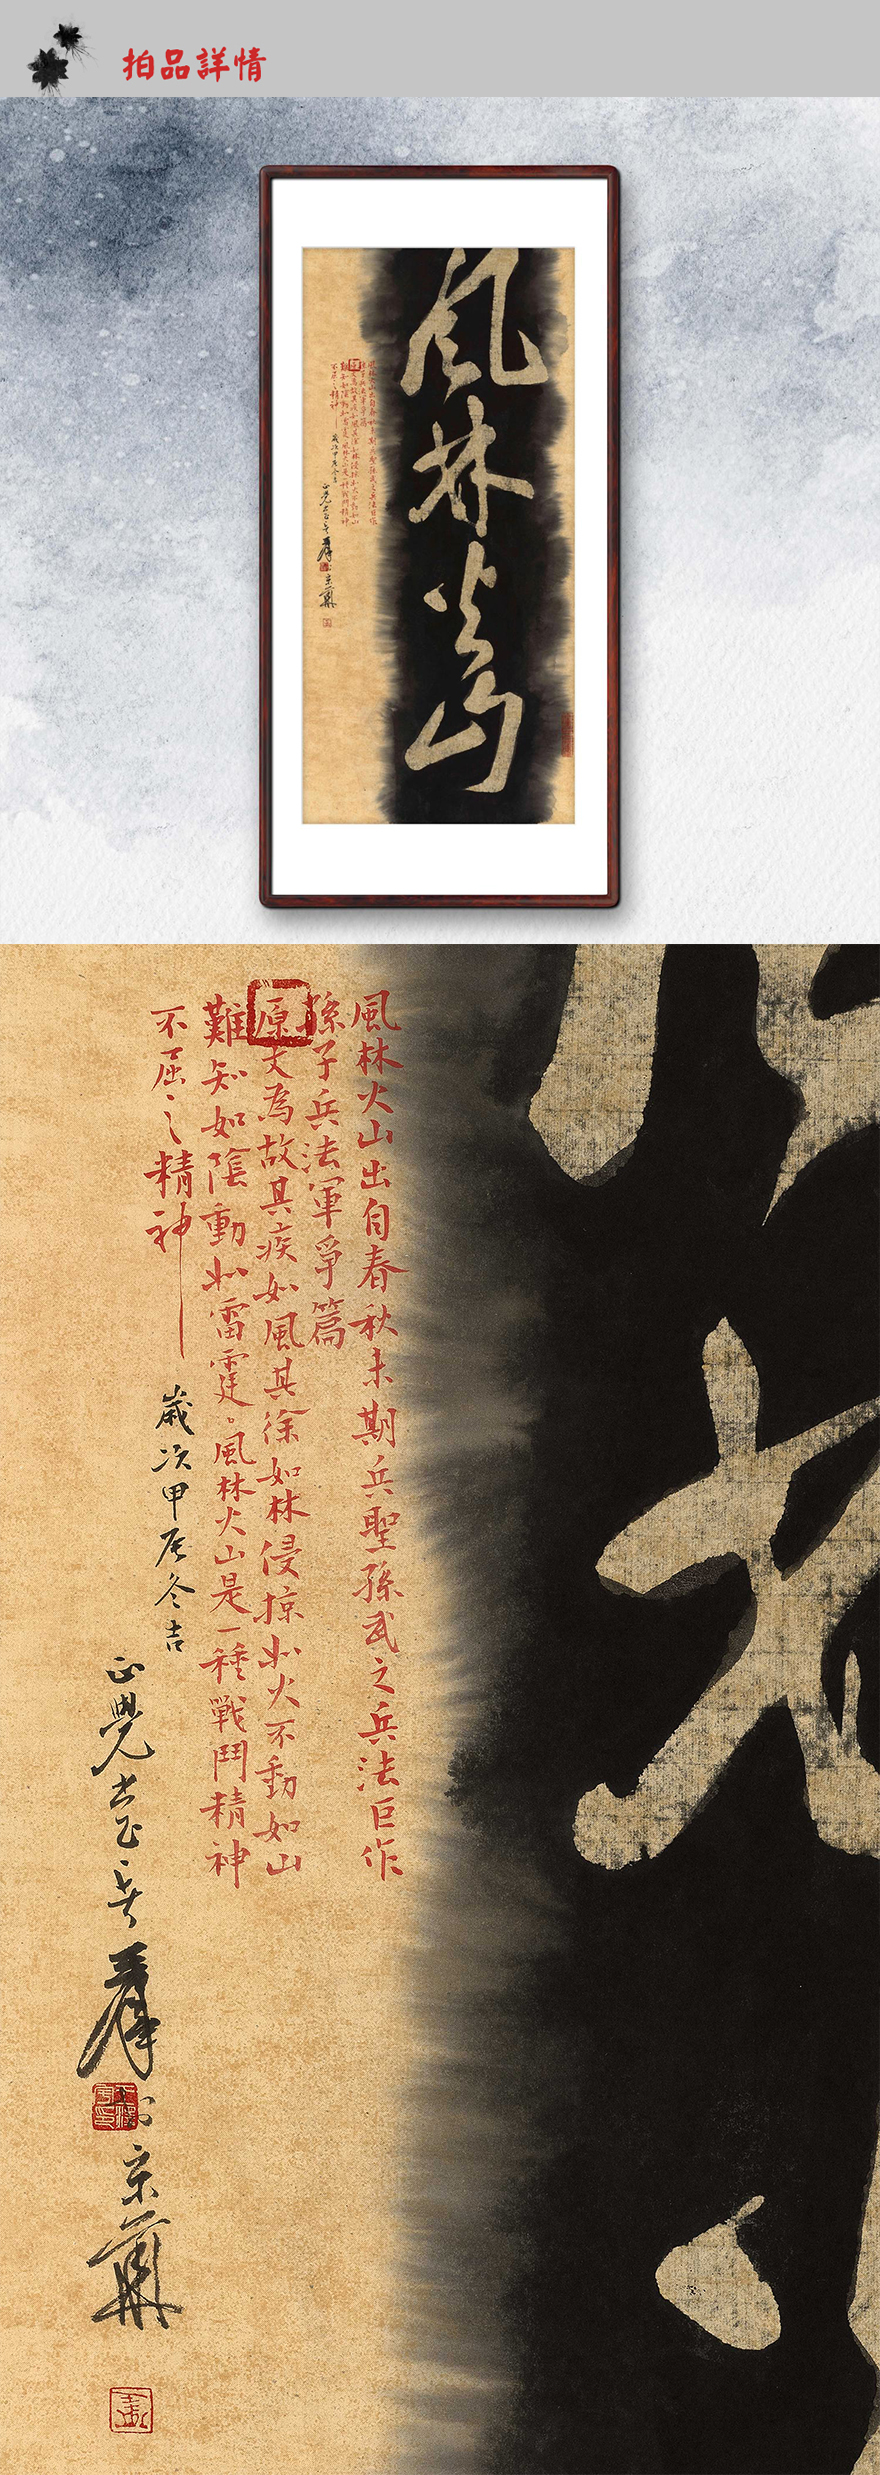 拍品詳情
風林火山
風林火山出自春秋末期兵聖孫武之兵法巨作
孫子兵法軍爭篇
原文為故其疾如風其徐如林侵掠如火不動如山
難知如陰動如雷霆風林火山是一種戰鬥精神
不屈之精神
歲次甲辰冬吉
正覺